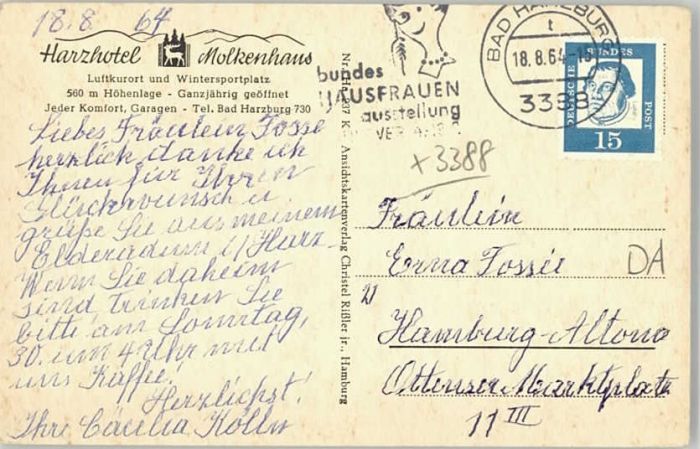 18.8 64
Harzhotel Molkenhaus
Luftkurort und Wintersportplatz
560 m Höhenlage - Ganzjährig geöffnet
Jeder Komfort, Garagen - Tel. Bad Harzburg 730
Liebes Fräulein Tosse
herzlich danke ich
Ihnen für Ihren
Glückwunsch u.
grüße Sie aus meinem
i/ Harz
Wenn Sie daheim
sind, trinken Sie
bitte am Sonntag,
30. um 4 Uhr mit
uns Kaffee!
Herzlichst!
Ihre Cäcilia Kölln
Ansichtskartenverlag Christel Rißler jr., Hamburg
bundes
HAUSFRAUEN
ausstellung
BAD HARZBURG
t
18.8.64-18
3388
DEUTSCHE BUNDES POST
15
+3388
Fräulein
Erna Tossée
DA
21
Hamburg-Altona
Ottenser Marktplatz
11 III